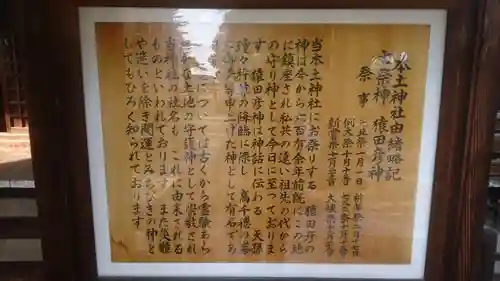 本土神社由緒略記
主祭神 猿田彦神
祭事
元旦祭一月一日
例大祭十月十日
新嘗祭十一月
当本土神社にお祭りする 猿田彦の
神は今から 百有余年前既にこの地
に鎮座され私共の遠い祖先の代から
の守り神として今日に至っておりま
す 猿田彦神は神話に伝わる 天孫
瓊々杵 の降臨に際し 高千穂の峯
に 申上げた神として有名であ
については古くから霊験あら
な土地の守護神として崇敬され
当神社の社名も これに由来される
ものといわれております また災難
や迷いを除き開運とみちびきの神と
してもひろく知られております